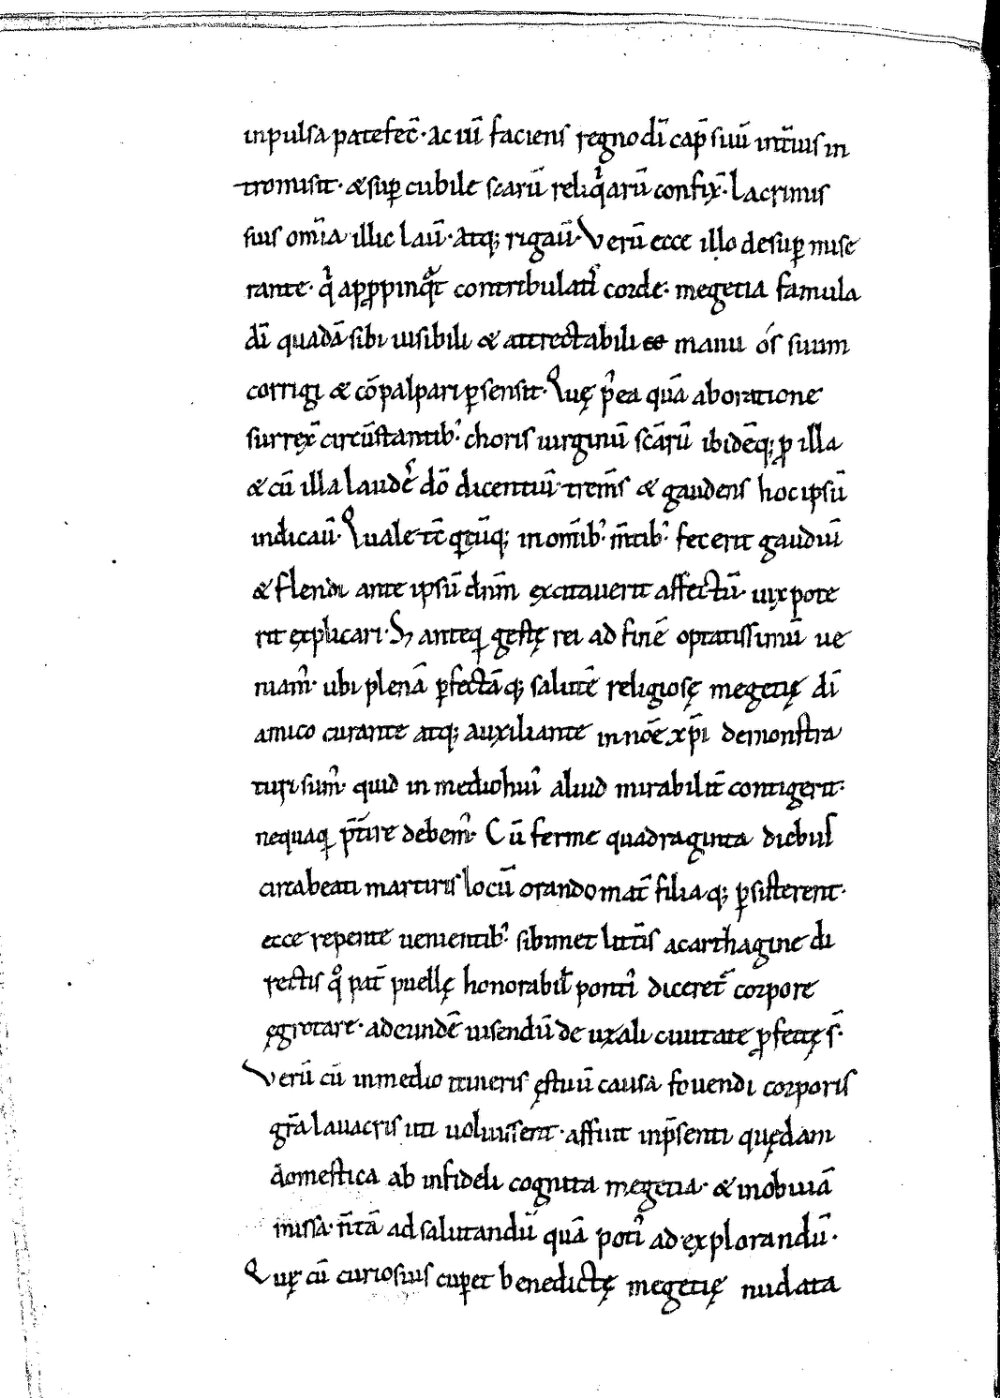 inpulsa patefec̄· ac uī faciens regno dī cap̄ suū int̄ius in
tromisit· & sup cubile scarū reliq̇arū confix̄· Lacrimis
suis om̄ia illic lauī· atq; rigauī· Verū ecce illo desup mise
rante· q̇ appropinq̄t contribulatī corde· megetia famula
dī quadā sibi uisibili & attrectabili manu ós suum
corrigi & cōpalpari p̱sensit· Quę p̄ea quā aboratione
surrex̄ circūstantib; choris uirginū scārū ibidēq; ꝓ illa
& cū illa laudē dō dicentiū trem̄s & gaudens hoc ipsū
indicauī· Quale tc̄ q̱tūq; in om̄ib; m̄tib; fecerit gaudiū
& flendi ante ipsū dn̄m excitauerit affectū· uix pote
rit explicari· S; anteq̱ gestę rei ad finē optatissimū ue
niam᾽· ubi plenā p̱fectāq; salutē religiosę megetię dī
amico curante atq; auxiliante in nōe xp̄i demonstra
turi sum᾽· quid in medio hui᾽ aliud mirabilit̄ contigerit·
nequaq̱ p̄t̄ire debem᾽· Cū ferme quadraginta diebus
circa beati martiris locū orando mat̄ filia q; p̱sisterent·
ecce repente uenientib; sibimet litt̄is acarthagine di
rectis q̊ pat̄ puellę honorabil ponti᾽ diceret᾽ corpore
ęgrotare· ad eundē uisendū de uzali ciuitate ꝓfectę s̄·
Verū cū in medio itineris ęstuū causa fouendi corporis
gr̄a lauacris uti uoluissent· affuit inp̄senti quędam
domestica ab infideli cognita megetia· & inobuiā
missa· n̄ tā ad salutandū quā poti᾽ ad explorandū·
Quę cū curiosius cup̱et benedictę megetię nudata